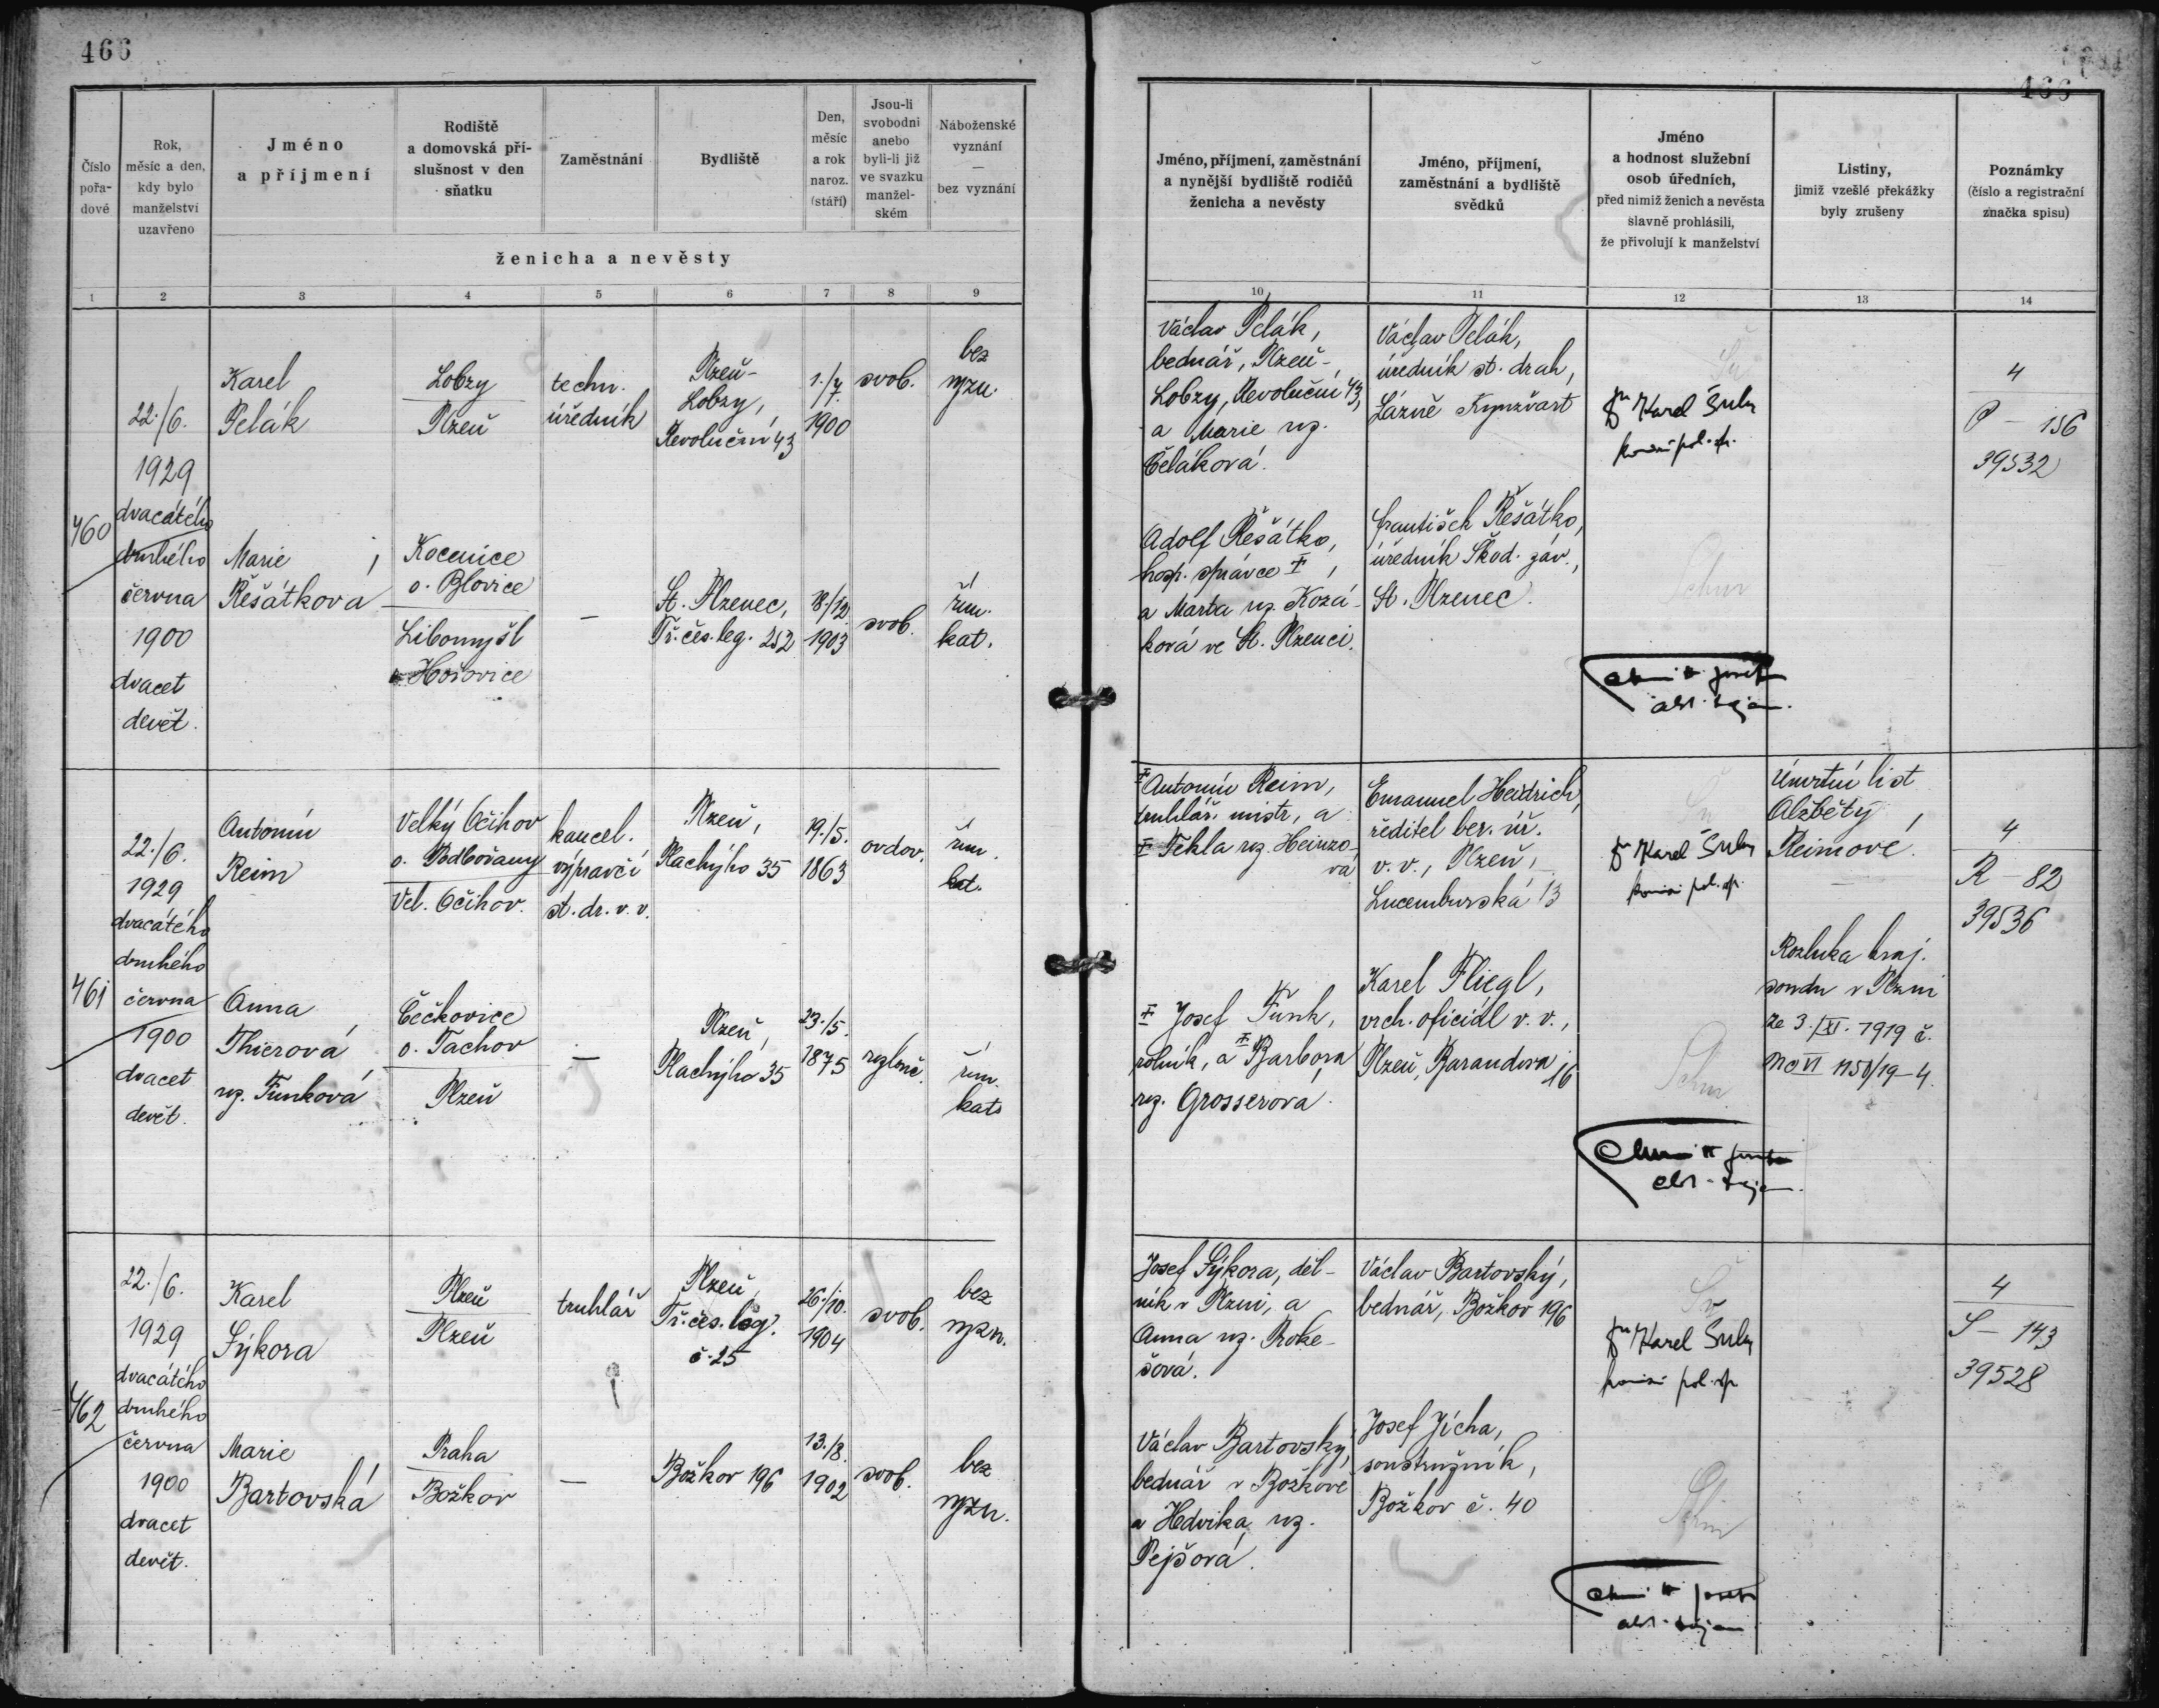 466
466
Číslo pořa-dové
Rok, měsíc a den, kdy bylo manželství uzavřeno
Jméno a příjmení
Rodiště a domovská pří-slušnost v den sňatku
Zaměstnání
Bydliště
Den, měsíc a rok naroz. (stáří)
Jsou-li svobodni anebo byli-li již ve svazku manžel-ském
Náboženské vyznání — bez vyznání
ženicha a nevěsty
Jméno, příjmení, zaměstnání a nynější bydliště rodičů ženicha a nevěsty
Jméno, příjmení, zaměstnání a bydliště svědků
Jméno a hodnost služební osob úředních, před nimiž ženich a nevěsta slavně prohlásili, že přivolují k manželství
Listiny, jimiž vzešlé překážky byly zrušeny
Poznámky (číslo a registrační značka spisu)
1 2 3 4 5 6 7 8 9 10 11 12 13 14
460
22./6.
1929
dvacátého
druhého
června
1900
dvacet
devět.
Karel
Pelák
Lobzy
Plzeň
techn.
úředník
Plzeň-
Lobzy,
Revoluční 43
1./7.
1900
svob.
bez
vyzn.
Václav Pelák,
bednář, Plzeň-
Lobzy, Revoluční 43,
a Marie roz.
Václav Pelák,
úředník st. drah,
Lázně Kynžvart
Karel
4
P - 156
39532
Marie
Řešátkova
Kocenice
o. Blovice
Libomyšl
Hořovice
—
St. Plzenec,
Tř. čes. leg. 252
18./12.
1903
svob.
řím.
kat.
Adolf Řešátko,
hosp. správce ‡,
a Marta roz. Kozá-
ková ve St. Plzenci.
František Řešátko,
úředník Škod. záv.,
St. Plzenec.
461
22./6.
1929
dvacátého
druhého
června
1900
dvacet
devět.
Antonín
Reim
Velký Očihov
o. Podbořany
Vel. Očihov.
kancel.
výpravčí
st. dr. v. v.
Plzeň,
Plachýho 35
19./5.
1863
ovdov.
řím.
kat.
‡ Antonín Reim,
truhlář. mistr, a
‡ Tekla roz. Heinzo-
vá
Emanuel Heidrich,
ředitel ber. úř.
v. v., Plzeň,
Lucemburská 13
Karel
Úmrtní list
Alžběty
Reimové.
4
R - 82
39536
Anna
Thierová
roz. Funková
Čečkovice
o. Tachov
Plzeň
—
Plzeň,
Plachýho 35
23./5.
1875
rozluč.
řím.
kat.
‡ Josef Funk,
rolník, a ‡ Barbora
roz. Grosserova.
Karel Fliegl,
vrch. oficiál v. v.,
Plzeň, Barandova 16
Rozluka kraj.
soudu v Plzni
ze 3./XI. 1919 č.
462
22./6.
1929
dvacátého
druhého
června
1900
dvacet
devět.
Karel
Sýkora
Plzeň
Plzeň
truhlář
Plzeň,
Tř. čes. leg.
č. 25
26./10.
1904
svob.
bez
vyzn.
Josef Sýkora, děl-
ník v Plzni, a
Anna roz. Proke-
šová.
Václav Bartovský,
bednář, Božkov 196
Karel
4
S - 143
39528
Marie
Bartovská
Praha
Božkov
—
Božkov 196
13./8.
1902
svob.
bez
vyzn.
Václav Bartovský,
bednář v Božkově
a Hedvika roz.
Pejšová.
Josef Jícha,
soustružník,
Božkov č. 40